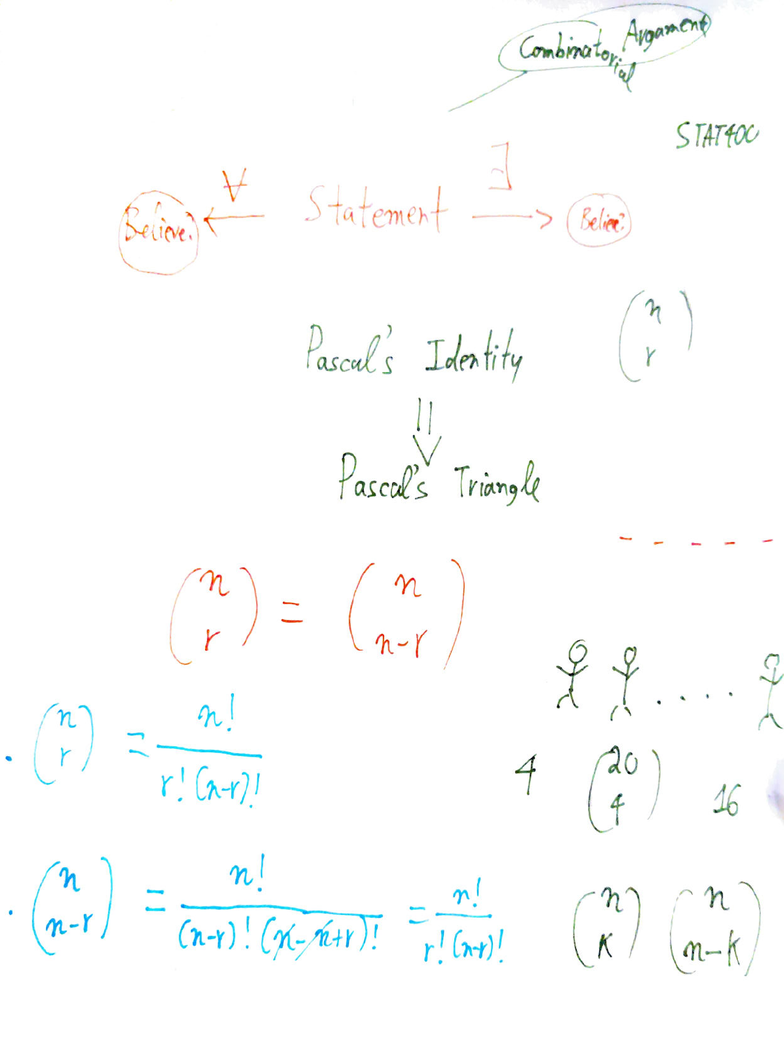 Combinatorial Argament
STAT400
Believe? ∀ Statement ∃ Believe?
Pascal's Identity
(n r)
⇓
Pascal's Triangle
(n r) = (n n-r)
. (n r) = n! / r!(n-r)!
4 (20 4) 16
. (n n-r) = n! / (n-r)!(n-n+r)! = n! / r!(n-r)!
(n k) (n n-k)